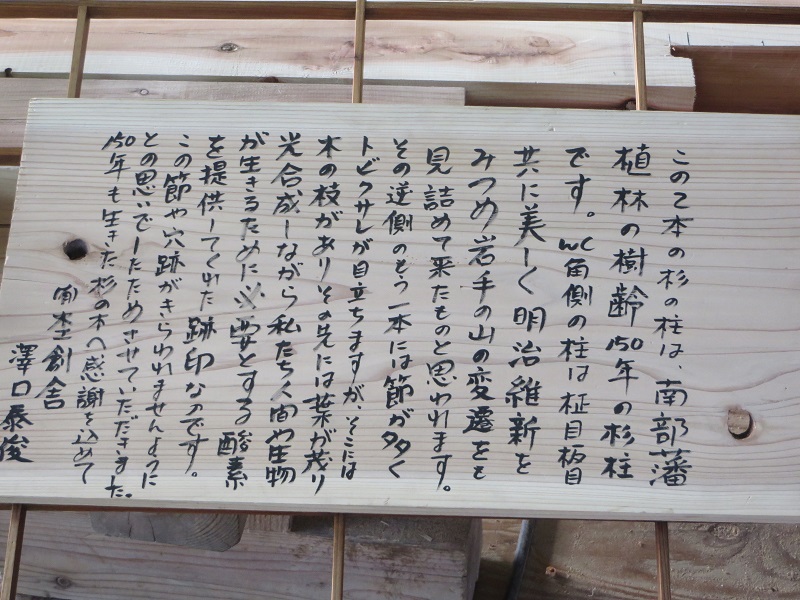 この2本の杉の柱は、南部藩
植林の樹齢150年の杉柱
です。WC角側の柱は柾目板目
共に美しく明治維新を
みつめ岩手の山の変遷をも
見詰めて来たものと思われます。
その逆側のもう一本には節が多く
トビクサレが目立ちますが、そこには
木の枝がありその先には葉が茂り
光合成しながら私たち人間や生物
が生きるために必要とする酸素
を提供してくれた跡印なのです。
この節や穴跡がきらわれませんように
との思いでしたためさせていただきました。
150年も生きた杉の木へ感謝を込めて
㈲杢創舎
澤口泰俊